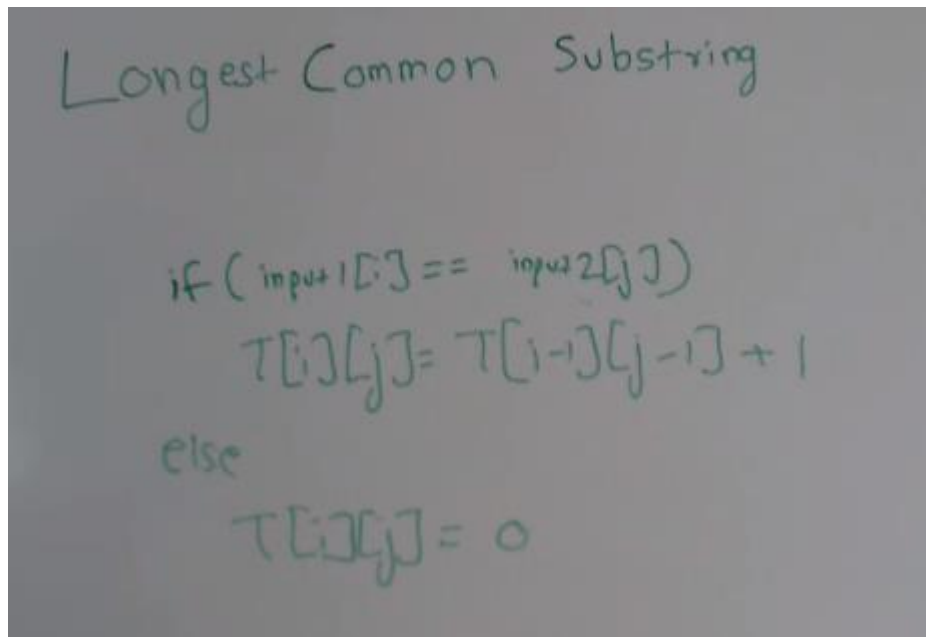 Longest Common Substring
if ( input1[i] == input2[j])
T[i][j] = T[i-1][j-1] + 1
else
T[i][j] = 0